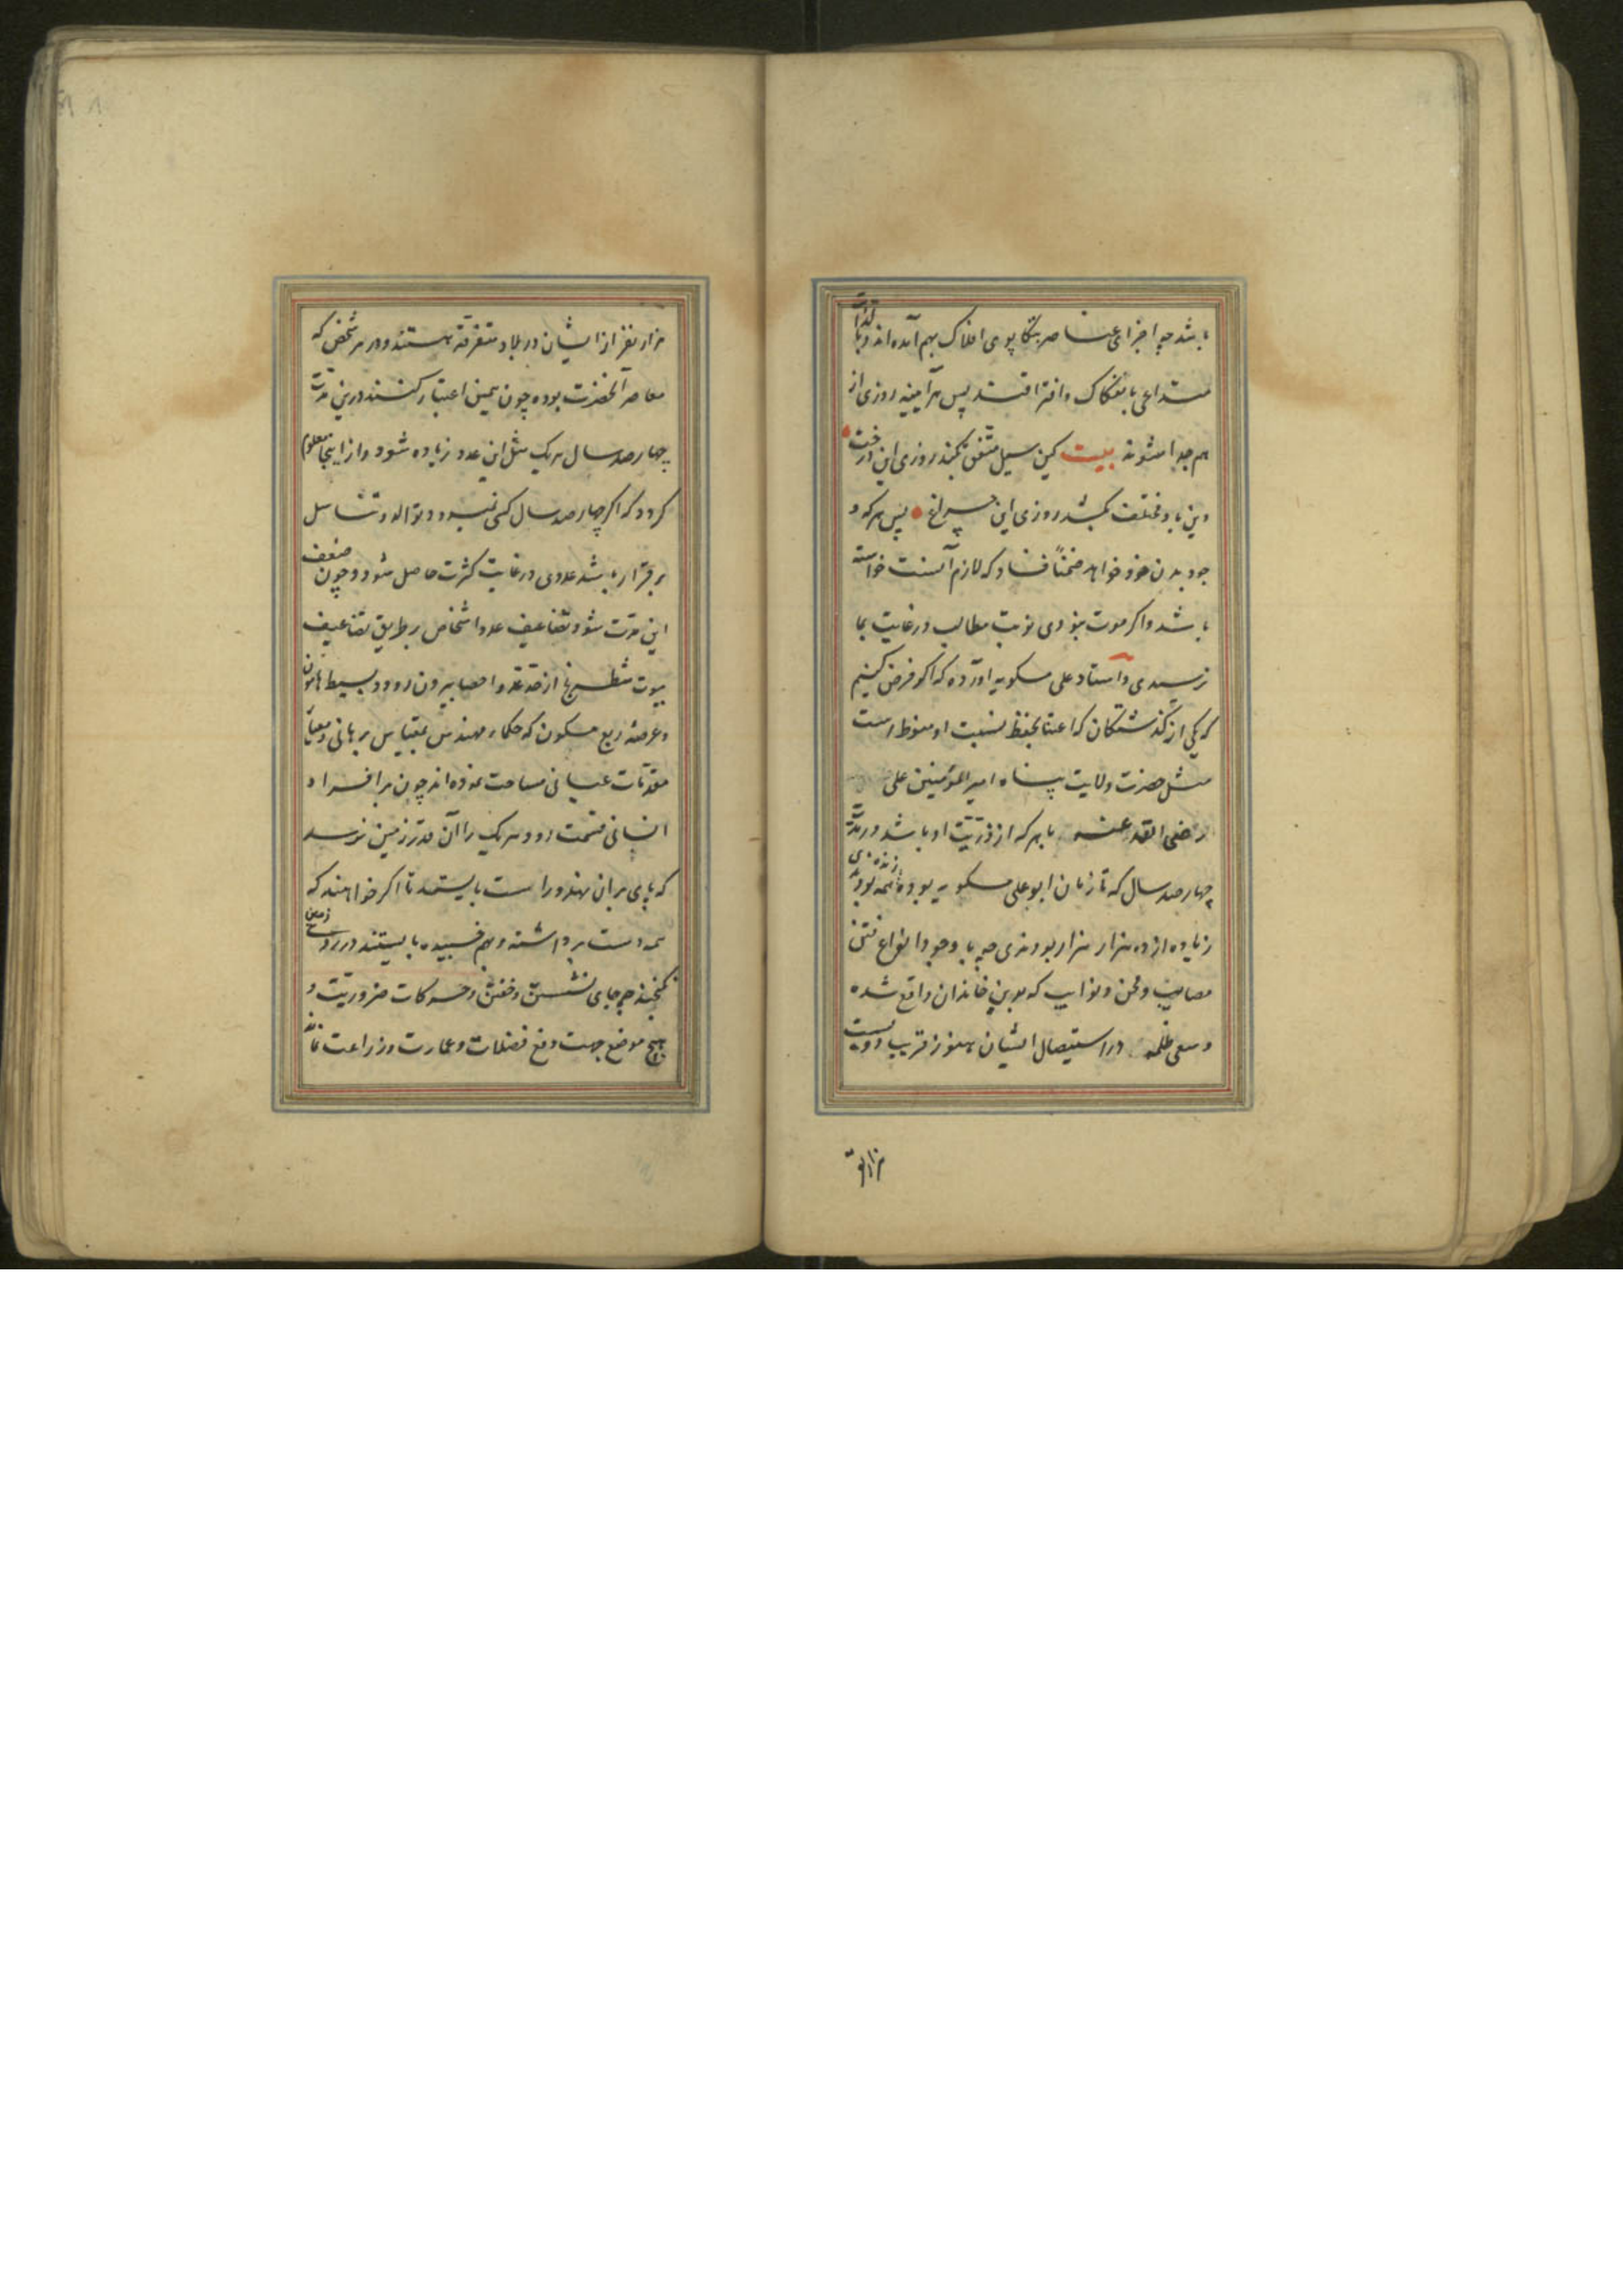 باشد چه اجزای عناصر بتکاپوی افلاک بهم آمده اند و بالذات
متداعی بانفکاک و افتراقند پس هرآینه روزی از
هم جدا شوند بیت کین سیل متفق بکند روزی این درخت
وین باد مختلف بکشد روزی این چراغ پس هر که و
جود بدن خود خواهد ضمناً فساد که لازم آنست خواسته
باشد و اکر موت نبودی نوبت مطالب و رغایت بما
نرسیدی و استاد علی مسکویه آورده که اکر فرض کنیم
که یکی از کذشتکان که اعتنا بحفظ نسبت او مضبوط است
مثل حضرت ولایت پناه امیر المؤمنین علی
رضی الله عنه با هر که از ذریّت او باشد در مدّت
چهارصد سال که تا زمان ابو علی مسکویه بوده همه زنده بودندی
زیاده از ده هزار هزار بودندی چه با وجود انواع فتن
مصایب و محن و نوایب که بدین خاندان واقع شده
و سعی ظلمه در استیصال ایشان هنوز قریب دویست
هزار نفر
هزار نفر از ایشان در بلاد متفرقه هستند و در هر شخص که
معاصر آنحضرت بوده چون همین اعتبار کنند درین مدّت
چهارصد سال هر یک مثل این عدد زیاده شود و از اینجا معلوم
کردد که اکر چهارصد سال کسی نمیرد و توالد و تناسل
برقرار باشد عددی در غایت کثرت حاصل شود و چون ضعف
این مدّت شود تضاعیف عدد اشخاص بر طریق تضاعیف
بیوت شطرنج از حدّ عدّ و احصا بیرون رود و بسیط هامون
و عرصهٔ ربع مسکون که حکماء مهندس بمقیاس برهانی و معیار
مقدّمات عیانی مساحت نموده اند چون بر افراد
انسانی قسمت رود هر یک را آن قدر زمین نرسد
که پای بر آن نهد و راست بایستد تا اکر خواهند که
همه دست برداشته و بهم چسبیده بایستند در روی زمین
نکنجند چه جای نشستن و خفتن و حرکات ضروریّت و
هیچ موضع جهت دفع فضلات و عمارت و زراعت نماند